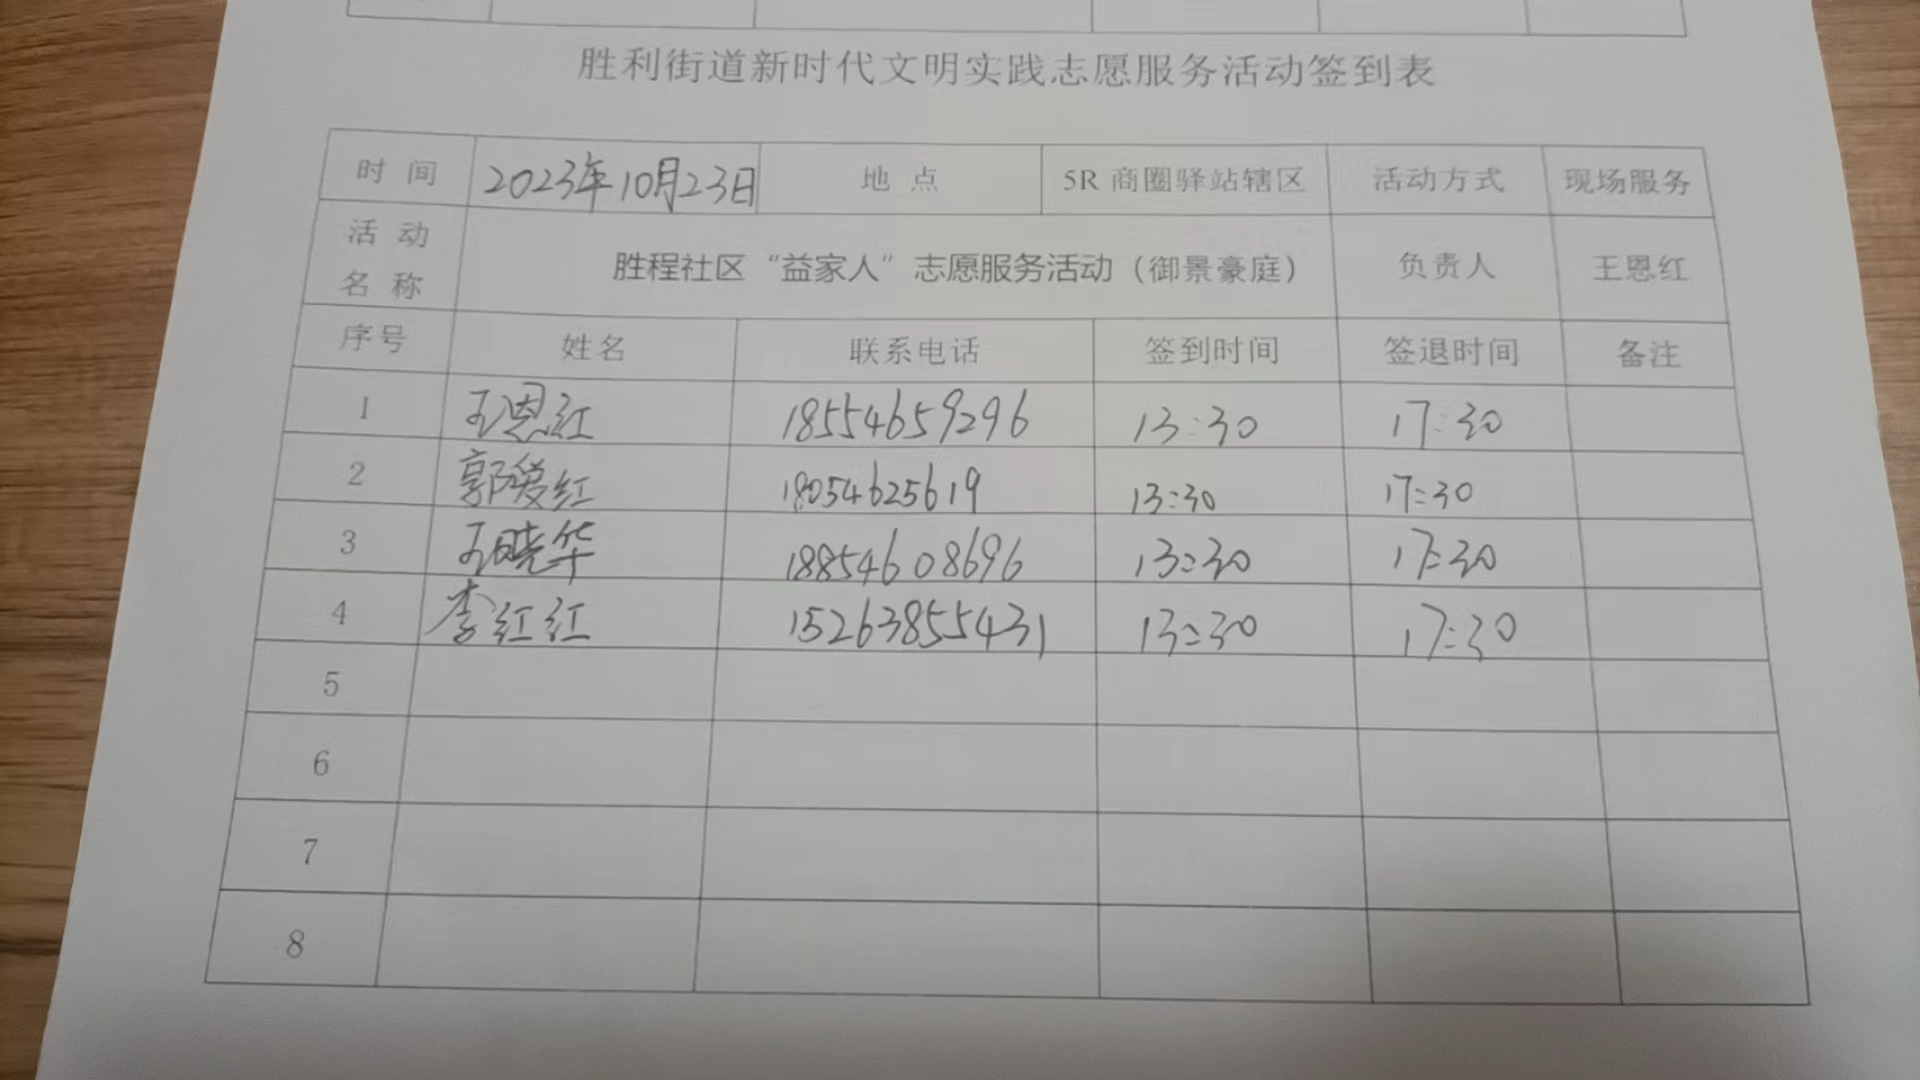 胜利街道新时代文明实践志愿服务活动签到表
时 间 2023年10月23日 地 点 5R 商圈驿站辖区 活动方式 现场服务
活 动 名 称 胜程社区“益家人”志愿服务活动（御景豪庭） 负责人 王恩红
序号 姓名 联系电话 签到时间 签退时间 备注
1 王恩红 18554659296 13:30 17:30
2 郭爱红 18054625619 13:30 17:30
3 王晓华 18854608696 13:30 17:30
4 李红红 15263855431 13:30 17:30
5
6
7
8